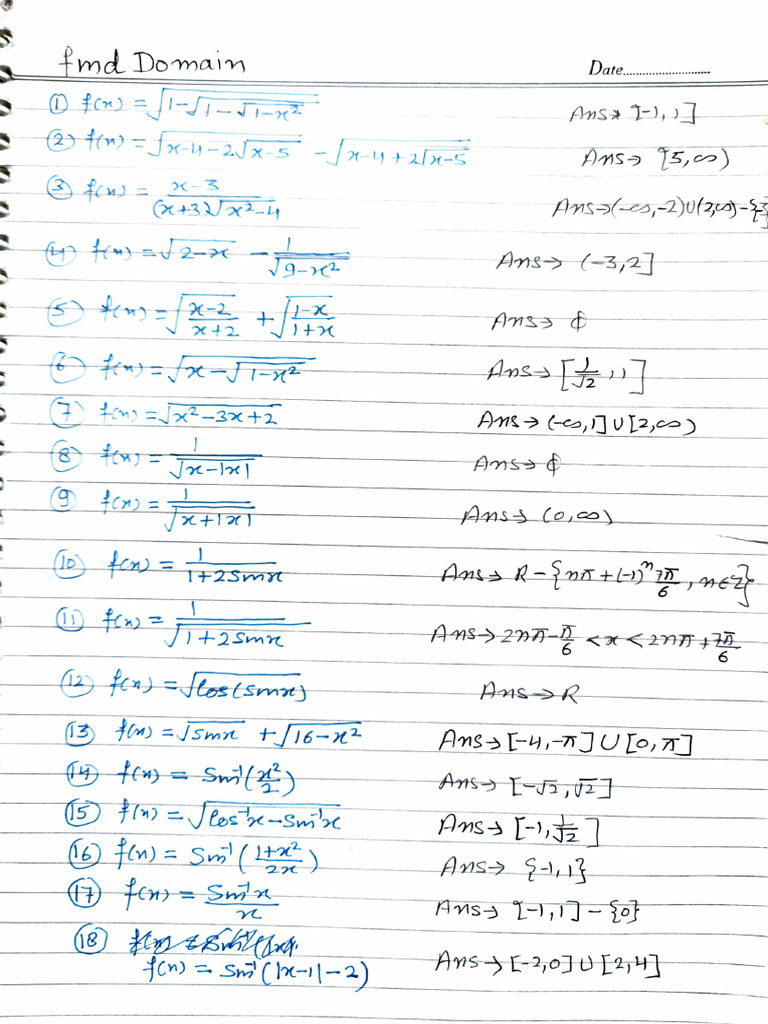 find Domain
Date..............................
① f(x) = √(1-√(1-√(1-x²))) Ans → [-1, 1]
② f(x) = √(x-4-2√(x-5)) - √(x-4+2√(x-5)) Ans → [5, ∞)
③ f(x) = (x-3)/((x+3)√(x²-4)) Ans → (-∞, -2)∪(2, ∞) - {3}
④ f(x) = √(2-x) - 1/√(9-x²) Ans → (-3, 2]
⑤ f(x) = √((x-2)/(x+2)) + √((1-x)/(1+x)) Ans → ϕ
⑥ f(x) = √(x-√(1-x²)) Ans → [1/√2, 1]
⑦ f(x) = √(x²-3x+2) Ans → (-∞, 1] ∪ [2, ∞)
⑧ f(x) = 1/√(x-|x|) Ans → ϕ
⑨ f(x) = 1/√(x+|x|) Ans → (0, ∞)
⑩ f(x) = 1/(1+2sinx) Ans → R - {nπ + (-1)ⁿ 7π/6, n∈Z}
⑪ f(x) = 1/√(1+2sinx) Ans → 2nπ - π/6 < x < 2nπ + 7π/6
⑫ f(x) = √(cos(sinx)) Ans → R
⑬ f(x) = √(sinx) + √(16-x²) Ans → [-4, -π] ∪ [0, π]
⑭ f(x) = sin⁻¹(x²/2) Ans → [-√2, √2]
⑮ f(x) = √(cos⁻¹x - sin⁻¹x) Ans → [-1, 1/√2]
⑯ f(x) = sin⁻¹((1+x²)/2x) Ans → {-1, 1}
⑰ f(x) = sin⁻¹x/x Ans → [-1, 1] - {0}
⑱
f(x) = sin⁻¹(|x-1|-2) Ans → [-2, 0] ∪ [2, 4]